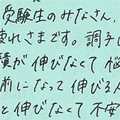 受験生のみなさん、
疲れさまです。調子
績が伸びなくて悩
前になって伸びる人
と伸びなくて不安